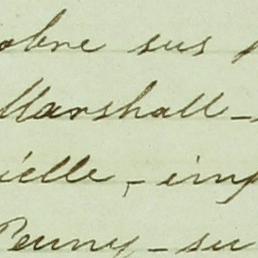 obre sus
Marshall -
ielle, - imp
Penny - su